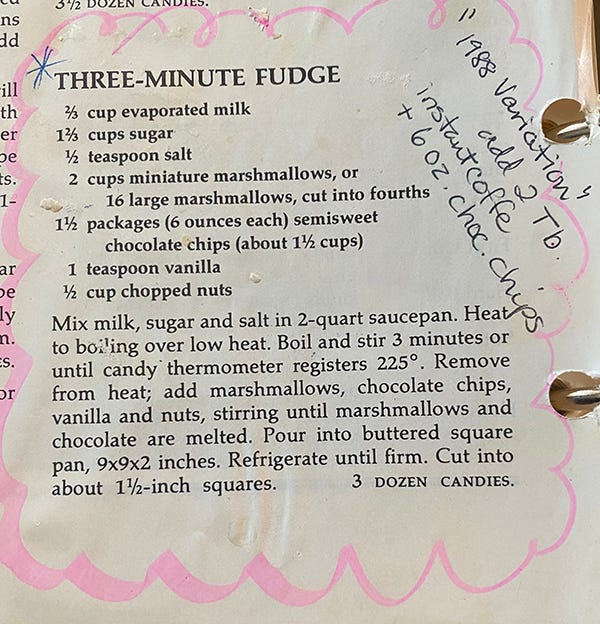 3½ DOZEN CANDIES.
ns
dd
ill
th
er
pe
ts.
1-
ar
be
ly
n.
s.
or
THREE-MINUTE FUDGE
⅔ cup evaporated milk
1⅔ cups sugar
½ teaspoon salt
2 cups miniature marshmallows, or
16 large marshmallows, cut into fourths
1½ packages (6 ounces each) semisweet
chocolate chips (about 1½ cups)
1 teaspoon vanilla
½ cup chopped nuts
Mix milk, sugar and salt in 2-quart saucepan. Heat
to boiling over low heat. Boil and stir 3 minutes or
until candy thermometer registers 225°. Remove
from heat; add marshmallows, chocolate chips,
vanilla and nuts, stirring until marshmallows and
chocolate are melted. Pour into buttered square
pan, 9x9x2 inches. Refrigerate until firm. Cut into
about 1½-inch squares. 3 DOZEN CANDIES.
"1988 Variation"
add 2 Tb.
instant coffe
+ 6 oz. choc. chips